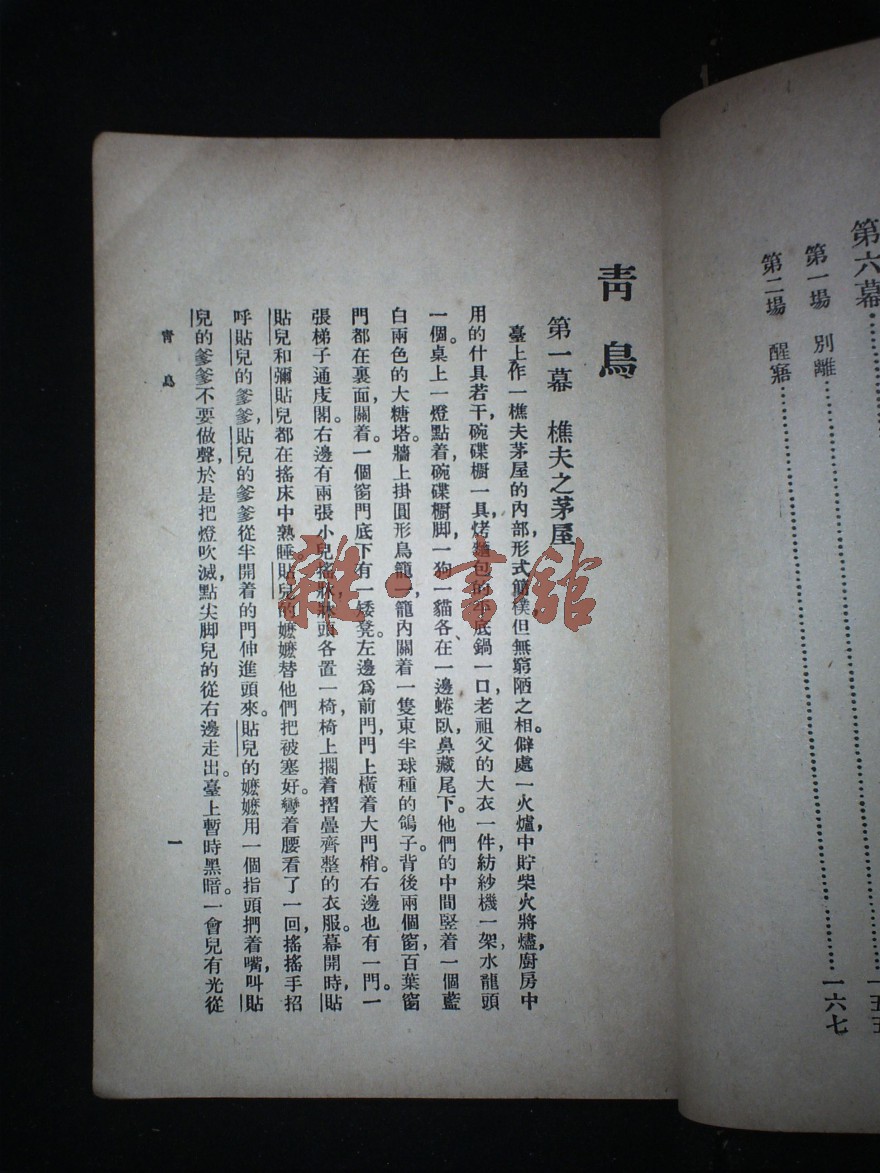 第六幕……………………一五五
第一場　別離……………………
第二場　醒寤……………………一六七
青鳥
第一幕　樵夫之茅屋
臺上作一樵夫茅屋的內部，形式簡樸，但無窮陋之相。僻處一火爐，中貯柴火將燼，廚房中
用的什具若干，碗碟櫥一具，烤麵包的平底鍋一口，老祖父的大衣一件，紡紗機一架，水龍頭
一個。桌上一燈點着，碗碟櫥脚，一狗一貓，各在一邊蜷臥，鼻藏尾下。他們的中間竪着一個藍
白兩色的大糖塔。牆上掛圓形鳥籠一，籠內關着一隻東半球種的鴿子。背後兩個窗，百葉窗
門都在裏面，關着。一個窗門底下有一矮凳。左邊爲前門，門上橫着大門梢。右邊也有一門。一
張梯子通庋閣。右邊有兩張小兒搖牀，牀頭各置一椅，椅上擱着摺疊齊整的衣服。幕開時，貼
貼兒和彌貼兒都在搖床中熟睡。貼兒的嬤嬤替他們把被塞好。彎着腰看了一回，搖搖手招
呼貼兒的爹爹，貼兒的爹爹從半開着的門伸進頭來。貼兒的嬤嬤用一個指頭捫着嘴，叫貼
兒的爹爹不要做聲，於是把燈吹滅，點尖脚兒的從右邊走出。臺上暫時黑暗。一會兒有光從
青鳥
一
雜·書館